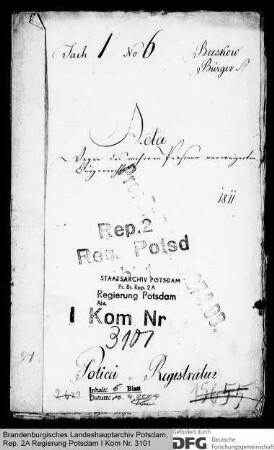 Fach 1 No 6 Beeskow
Bürger S.
Acta
Wegen des mehrern Personen verweigerten
Bürgerrechts
1811
Rep. 2
Reg. Potsd
STAATSARCHIV POTSDAM
Pr. Br. Rep. 2 A
Regierung Potsdam
Abt.
I Kom Nr
3101
Policei Registratur
Inhalt: 6 Blatt
Datum:
Brandenburgisches Landeshauptarchiv Potsdam,
Rep. 2A Regierung Potsdam I Kom Nr. 3101
Gefördert durch
DFG Deutsche
Forschungsgemeinschaft